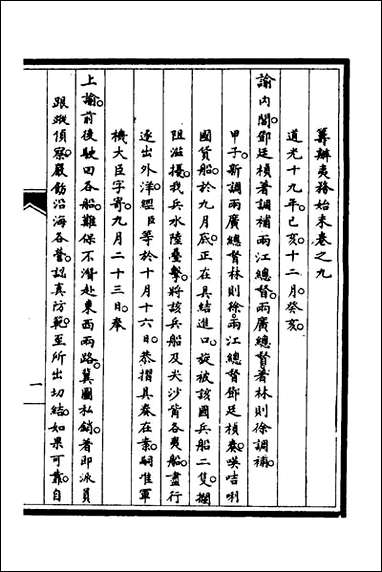 籌辦夷務始末卷之九
道光十九年己亥十二月癸亥
諭內閣鄧廷楨著調補兩江總督兩廣總督著林則徐調補
甲子新調兩廣總督林則徐兩江總督鄧廷楨奏㗎咭唎
國貨船於九月底正在具結進口旋被該國兵船二隻攔
阻滋擾我兵水陸臺擊將該兵船及尖沙嘴各夷船盡行
逐出外洋臣等於十月十六日恭摺具奏在案嗣准軍
機大臣字寄九月二十三日奉
上諭前後駛回各船難保不潛赴東西兩路冀圖私銷著即派員
跟蹤偵察嚴飭沿海各營認真防範至所出切結如果可靠自
一